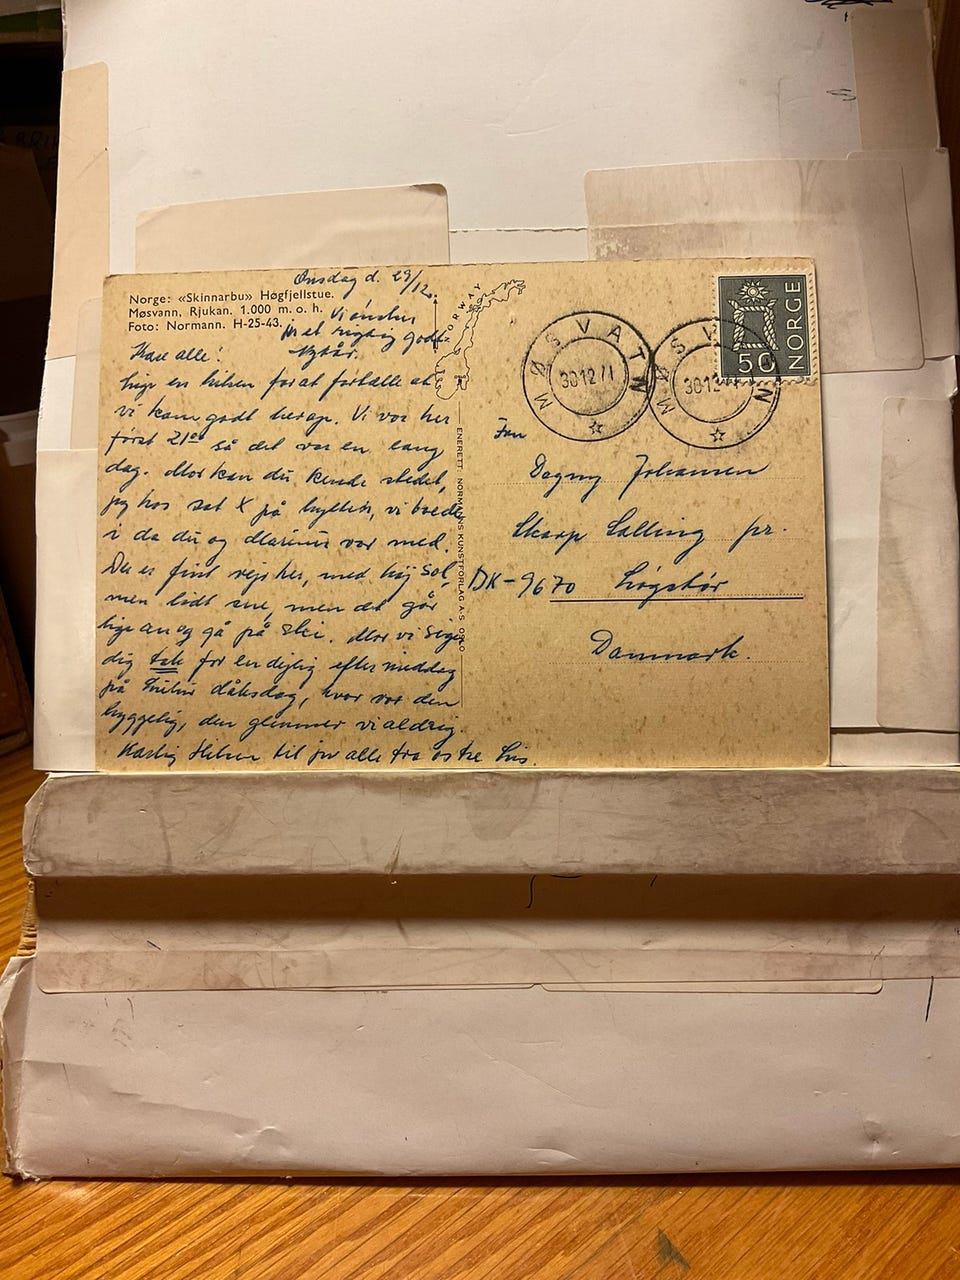 Norge: «Skinnarbu» Høgfjellstue.
Møsvann, Rjukan. 1.000 m. o. h.
Foto: Normann. H-25-43.
Onsdag d. 29/12.
Vi ønsker
jer et rigtig godt
Nytår.
Kære alle!
Lige en hilsen for at fortælle at
vi kom godt herop. Vi var her
først 21⁰⁰ så det var en lang
dag. Mor kan du kende stedet,
jeg har sat X på hytten, vi boede
i da du og Marinus var med.
Der er fint vejr her, med høj sol,
men lidt sne, men det går
lige an og gå på ski. Mor vi siger
dig tak for en dejlig eftermiddag
på dåbsdag, hvor var den
hyggelig, den glemmer vi aldrig.
Kærlig Hilsen til jer alle fra os tre
NORWAY
ENERETT: NORMANNS KUNSTFORLAG A.S OSLO
MØSVATN
30 12 71
MØSVATN
30 12
50
NORGE
Fru
Dagny Johansen
Skarp Salling pr.
DK-9670 Løgstør
Danmark.